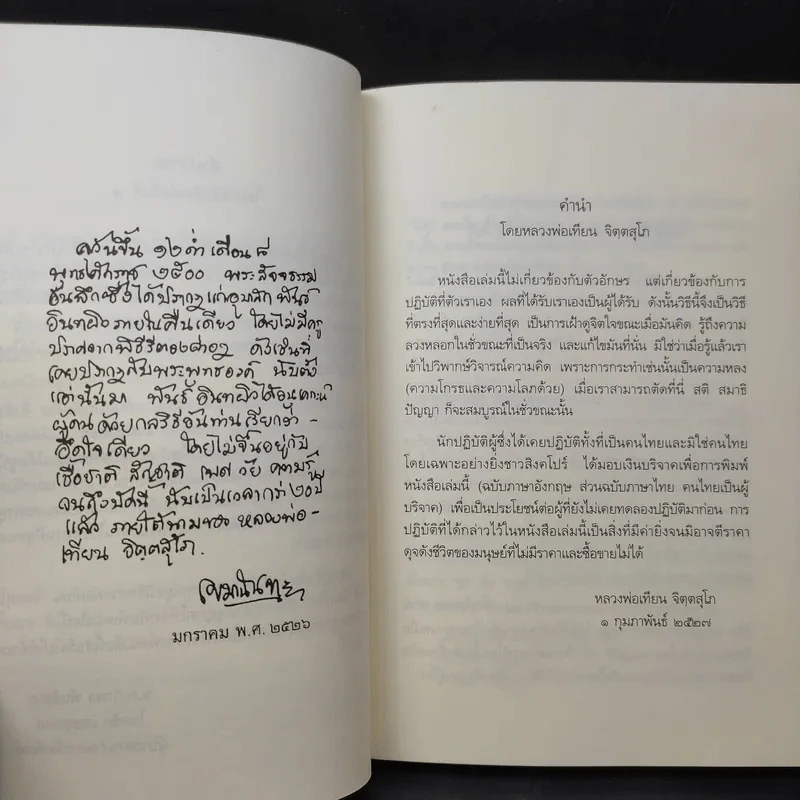 ครั้นขึ้น ๑๒ ค่ำ เดือน ๘
พุทธศักราช ๒๕๐๐ พระสัจจธรรม
อันลึกซึ้งได้ปรากฏแก่อุบาสก พันธ์
อินทผิว ภายในคืนเดียว โดยไม่มีครู
ปราศจากพิธีรีตองต่างๆ ดังเช่นที่
เคยปรากฏกับพระพุทธองค์ นับตั้ง
แต่นั้นมา พันธ์ อินทผิว ได้อนุเคราะห์
ผู้คนด้วยกลวิธีอันท่านเรียกว่า
อึดใจเดียว โดยไม่ขึ้นอยู่กับ
เชื้อชาติ สัญชาติ เพศ วัย ความรู้
จนถึงบัดนี้ นับเป็นเวลากว่า ๒๐ ปี
แล้ว ภายใต้นามของ หลวงพ่อ-
เทียน จิตฺตสุโภ.
เขมานันทะ
มกราคม พ.ศ. ๒๕๒๖
คำนำ
โดยหลวงพ่อเทียน จิตฺตสุโภ
หนังสือเล่มนี้ไม่เกี่ยวข้องกับตัวอักษร แต่เกี่ยวข้องกับการ
ปฏิบัติที่ตัวเราเอง ผลที่ได้รับเราเองเป็นผู้ได้รับ ดังนั้นวิธีนี้จึงเป็นวิธี
ที่ตรงที่สุดและง่ายที่สุด เป็นการเฝ้าดูจิตใจขณะเมื่อมันคิด รู้ถึงความ
ลวงหลอกในชั่วขณะที่เป็นจริง และแก้ไขมันที่นั่น มิใช่ว่าเมื่อรู้แล้วเรา
เข้าไปวิพากษ์วิจารณ์ความคิด เพราะการกระทำเช่นนั้นเป็นความหลง
(ความโกรธและความโลภด้วย) เมื่อเราสามารถตัดที่นี่ สติ สมาธิ
ปัญญา ก็จะสมบูรณ์ในชั่วขณะนั้น
นักปฏิบัติผู้ซึ่งได้เคยปฏิบัติทั้งที่เป็นคนไทยและมิใช่คนไทย
โดยเฉพาะอย่างยิ่งชาวสิงคโปร์ ได้มอบเงินบริจาคเพื่อการพิมพ์
หนังสือเล่มนี้ (ฉบับภาษาอังกฤษ ส่วนฉบับภาษาไทย คนไทยเป็นผู้
บริจาค) เพื่อเป็นประโยชน์ต่อผู้ที่ยังไม่เคยทดลองปฏิบัติมาก่อน การ
ปฏิบัติที่ได้กล่าวไว้ในหนังสือเล่มนี้เป็นสิ่งที่มีค่ายิ่งจนมิอาจตีราคา
ดุจดังชีวิตของมนุษย์ที่ไม่มีราคาและซื้อขายไม่ได้
หลวงพ่อเทียน จิตฺตสุโภ
๑ กุมภาพันธ์ ๒๕๒๗